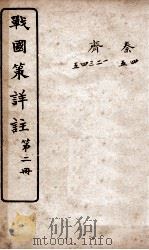 秦
四五
齊
一二三四五
戰國策詳註 第二冊